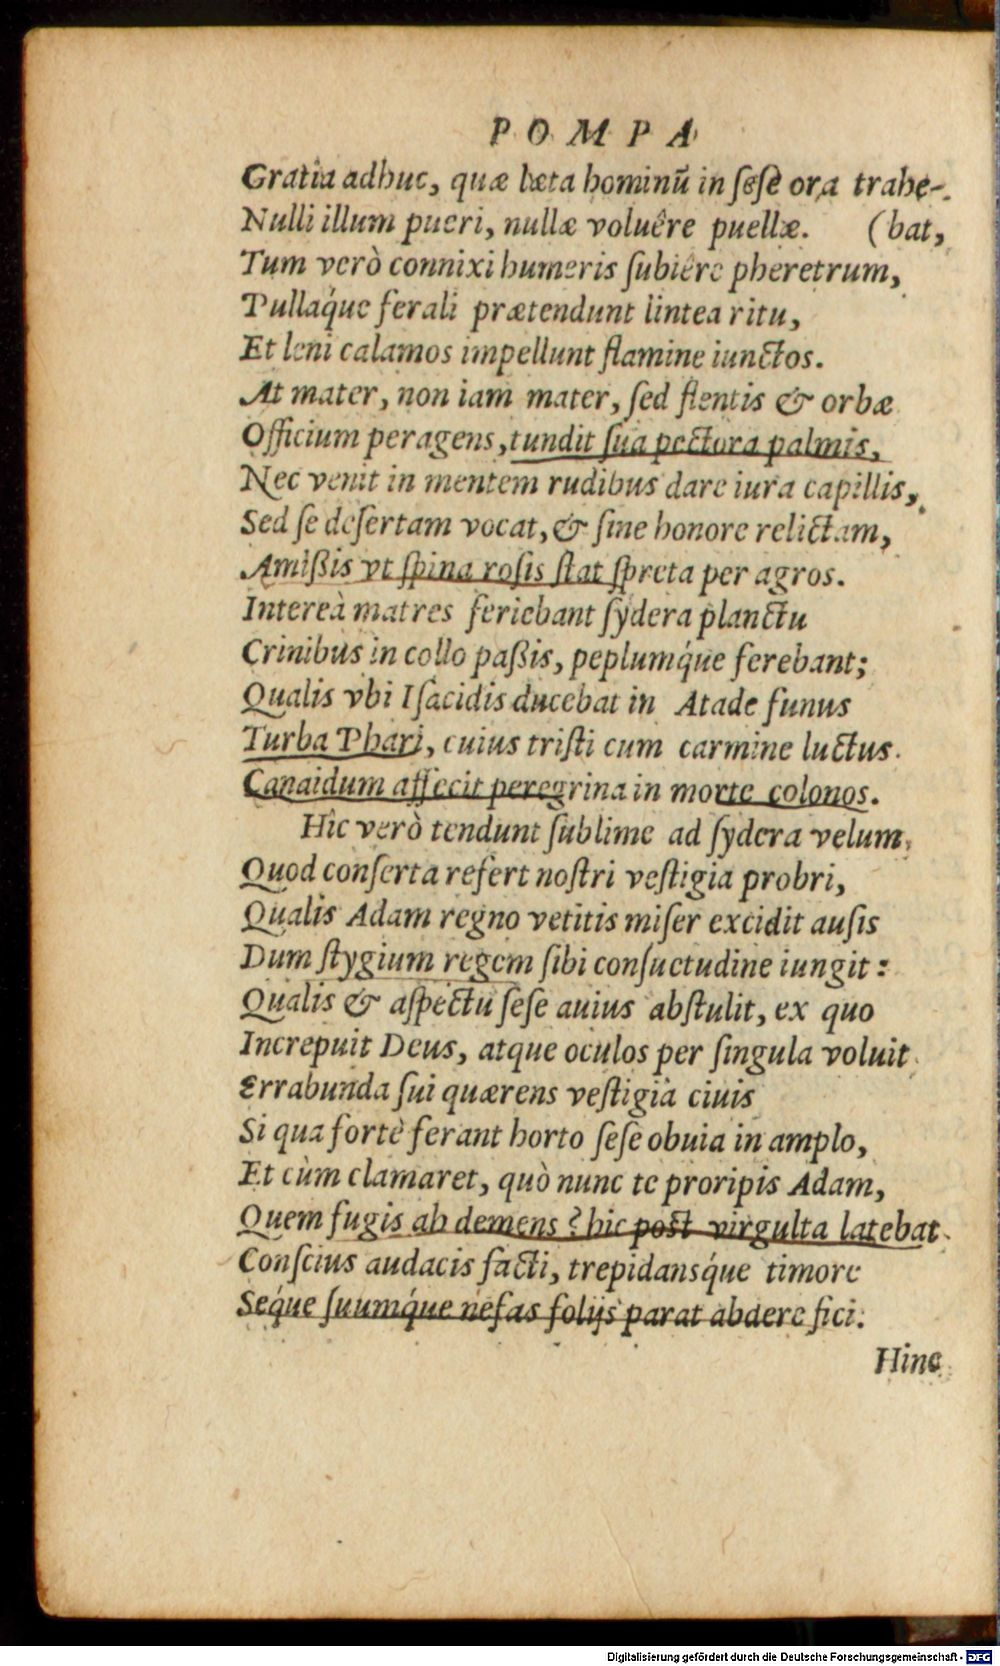 POMPA
Gratia adhuc, quæ læta hominũ in ſeſe ora trahe-
Nulli illum pueri, nullæ voluêre puellæ. (bat,
Tum verò connixi humeris ſubiêre pheretrum,
Pullaq́ue ferali prætendunt lintea ritu,
Et leni calamos impellunt flamine iunctos.
At mater, non iam mater, ſed flentis & orbæ
Officium peragens, tundit ſua pectora palmis,
Nec venit in mentem rudibus dare iura capillis,
Sed ſe deſertam vocat, & ſine honore relictam,
Amißis vt ſpina roſis ſtat ſpreta per agros.
Intereà matres feriebant ſydera planctu
Crinibus in collo paßis, peplumq́ue ferebant;
Qualis vbi Iſacidis ducebat in Atade funus
Turba Pharj, cuius triſti cum carmine luctus
Canaidum affecit peregrina in morte colonos.
Hîc verò tendunt ſublime ad ſydera velum,
Quod conſerta refert noſtri veſtigia probri,
Qualis Adam regno vetitis miſer excidit auſis
Dum ſtygium regem ſibi conſuetudine iungit:
Qualis & aſpectu ſeſe auius abſtulit, ex quo
Increpuit Deus, atque oculos per ſingula voluit
Errabunda ſui quærens veſtigia ciuis
Si qua fortè ferant horto ſeſe obuia in amplo,
Et cùm clamaret, quò nunc te proripis Adam,
Quem fugis ah demens? hic post virgulta latebat
Conſcius audacis facti, trepidansq́ue timore
Seq́ue ſuumq́ue nefas folijs parat abdere fici.
Hinc
Digitalisierung gefördert durch die Deutsche Forschungsgemeinschaft - DFG